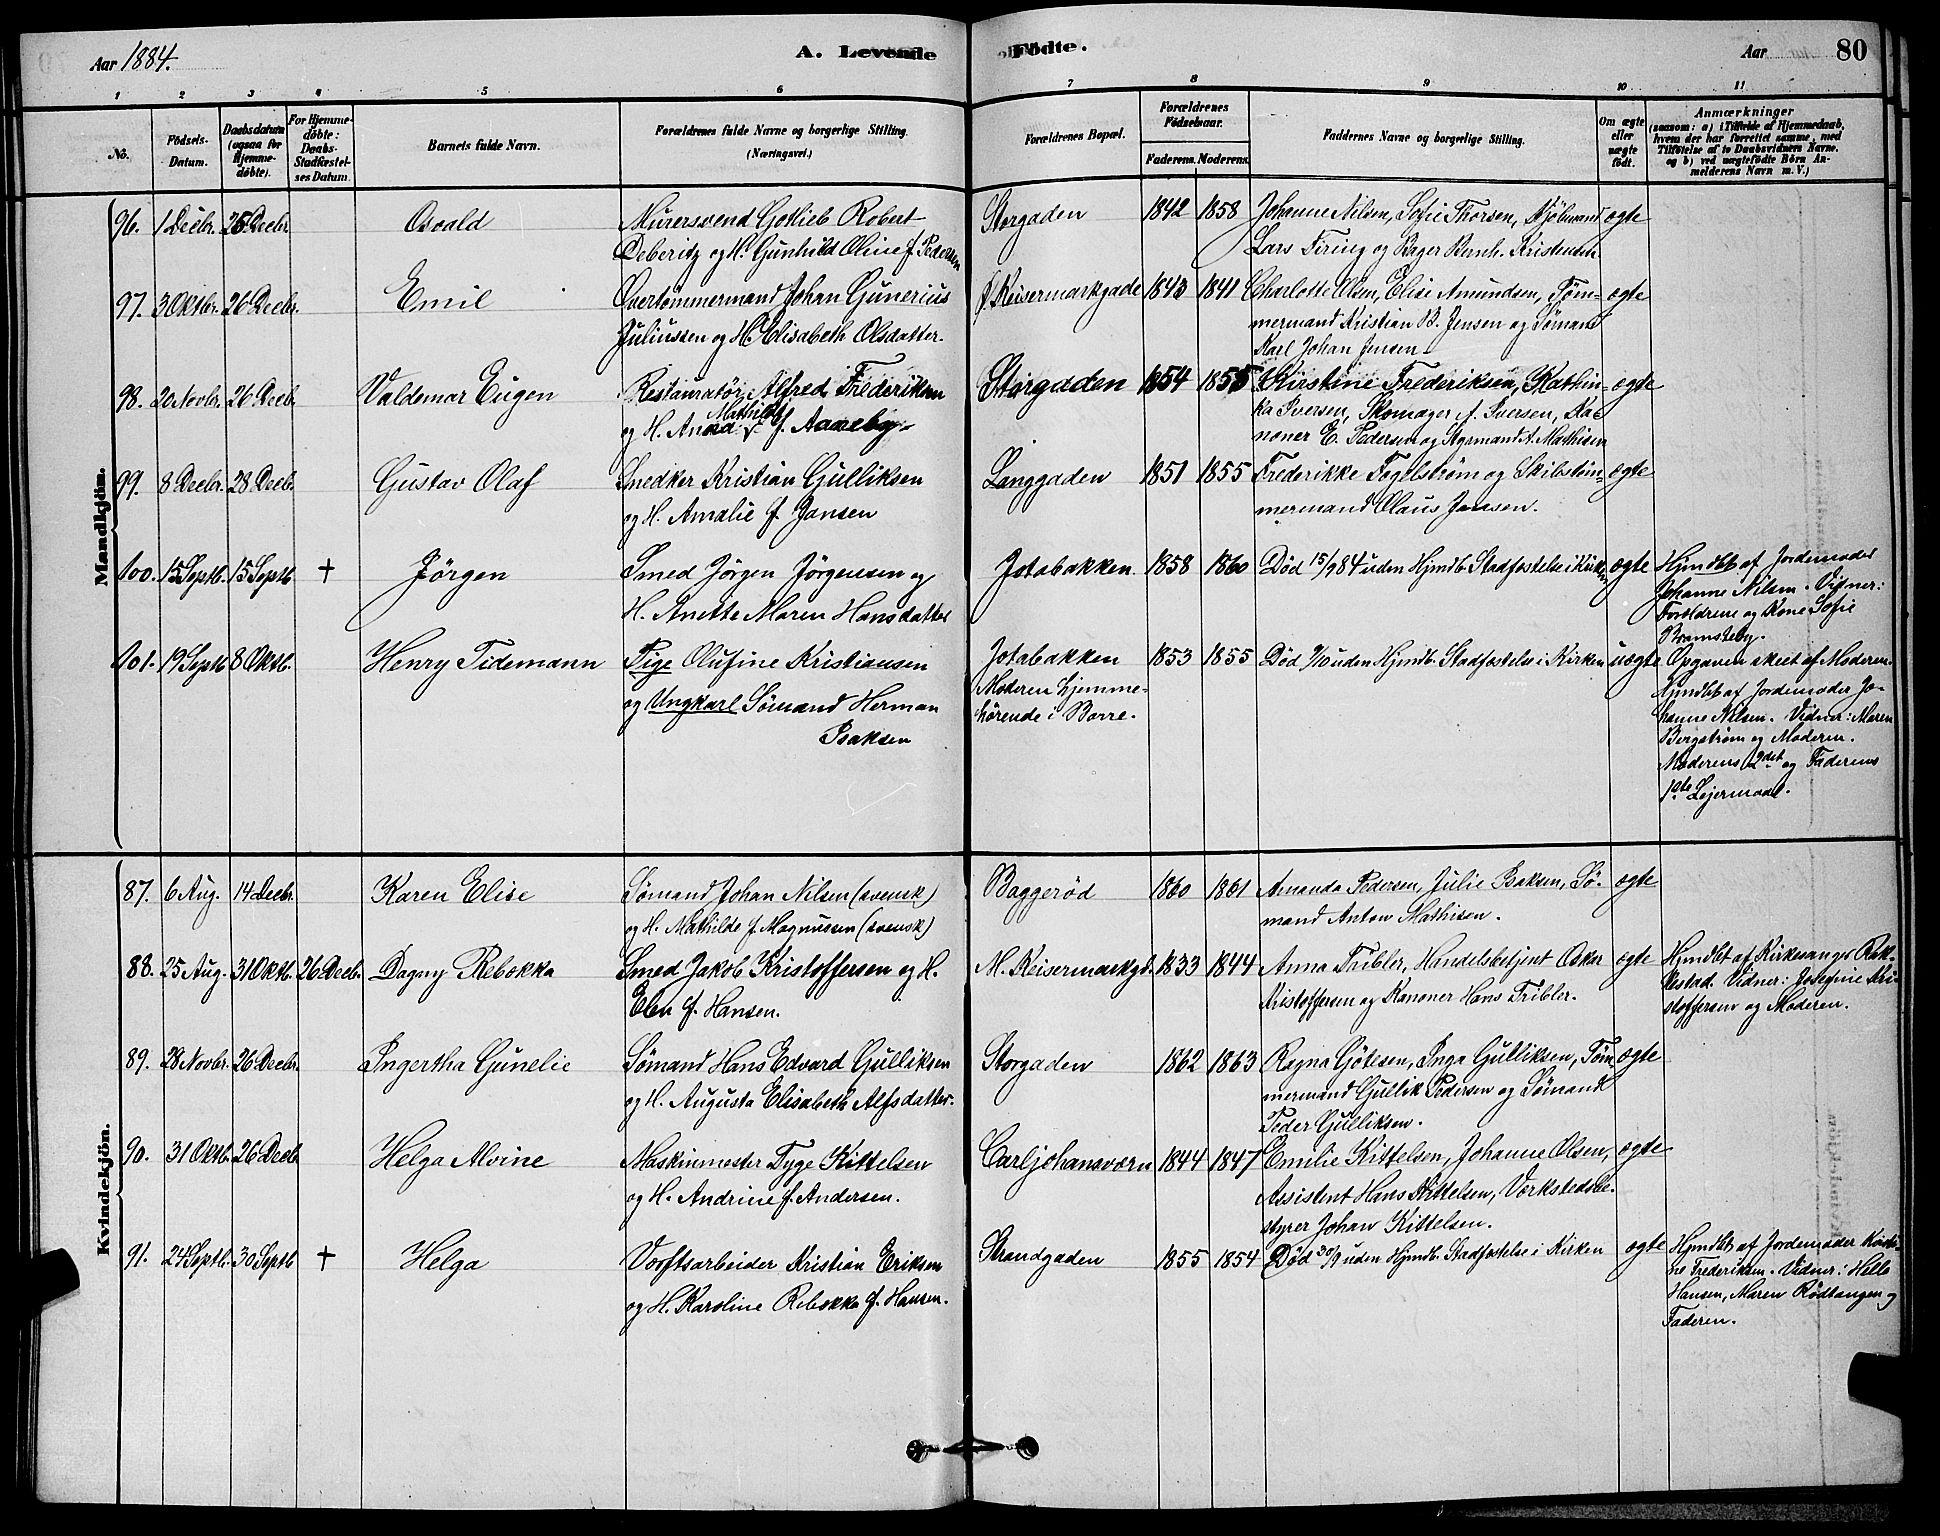 Aar 1884.
A. Levende Fødte.
Aar
80
1 2 3 4 5 6 7 8 9 10 11
No.
Fødsels-Datum.
Daabsdatum (ogsaa for Hjemmedøbte).
For Hjemmedøbte: Daabs-Stadfæstelses Datum.
Barnets fulde Navn.
Forældrenes fulde Navne og borgerlige Stilling. (Næringsvei.)
Forældrenes Bopæl.
Forældrenes Fødselsaar.
Faderens. Moderens.
Faddernes Navne og borgerlige Stilling.
Om ægte eller uægte født.
Anmærkninger
(saasom: a) i Tilfælde af Hjemmedaab, hvem der har forrettet samme, med Tilføielse af to Daabsvidners Navne, og b) ved uægtefødte Børn Anmelderens Navn m. V.)
Mandkjön.
96. 1 Decbr. 25 Decbr. Osvald Murersvend Gotlieb Robert Storgaden 1842 1858 Johanne Nilsen, Sofie Thorsen, Kjöbmand ægte
Deberitz og H. Gunhild Oline f. Pedersen Lars Firing og Bager Bernh. Kristensen
97. 3 Oktbr. 26 Decbr. Emil Overtömmermand Johan Gunerius Keisermarkgade 1843 1841 Charlotte Olsen, Elise Amundsen, Töm- ægte
Juliussen og H. Elisabeth Olsdatter. mermand Kristian B. Jensen og Sömand
Karl Johan Jensen
98. 20 Novbr. 26 Decbr. Valdemar Eugen Restauratör Alfred Frederiksen Storgaden 1854 1855 Kirstine Frederiksen, Kathin- ægte
og H. Anna Mathilde f. Aaneby ka Iversen, Skomager A. Iversen, Ka-
noner E. Pedersen og Styrmand A. Mathisen
99. 8 Decbr. 28 Decbr. Gustav Olaf Snedker Kristian Gulliksen Langgaden 1851 1855 Frederikke Fogelström og Skibstöm- ægte
og H. Amalie f. Jansen mermand Olaus Janssen.
100. 15 Septb. 15 Septb. † Jörgen Smed Jörgen Jörgensen og Jotabakken 1858 1860 Död 15/9 84 uden Hjmdb. Stadfæstelse i Kirken ægte Hjmdbt af Jordemoder
H. Anette Maren Hansdatter Johanne Nilsen. Vidner:
Forældrene og Kone Sofie
Bramsteby.
101. 19 Septb. 8 Oktb. Henry Tidemann Pige Olufine Kristiansen Jotabakken 1853 1855 Död /10 uden Hjmdb. Stadfæstelse i Kirken uægte Opgaven skeet af Moderen.
og Ungkarl Sömand Herman Moderen hjemme- Hjmdbt af Jordemoder Jo-
Isaksen hörende i Borre. hanne Nilsen. Vidner: Maren
Bergström og Moderen.
Moderens 2det og Faderens
1ste Lejermaal.
Kvindekjön.
87. 6 Aug. 14 Decbr. Karen Elise Sömand Johan Nilsen (svensk) Baggeröd 1860 1861 Amanda Pedersen, Julie Isaksen, Sö- ægte
og H. Mathilde f. Magnussen (svensk) mand Anton Mathisen.
88. 25 Aug. 31 Oktb. 26 Decbr. Dagny Rebekka Smed Jakob Kristoffersen og H. M. Keisermarkgd. 1833 1844 Anna Tribler, Handelsbetjent Oskar ægte Hjmdbt af Kirkesanger Rak-
Elen f. Hansen. Kristoffersen og Kanoner Hans Tribler. kestad. Vidner: Josefine Kri-
stoffersen og Moderen.
89. 28 Novbr. 26 Decbr. Ingertha Gunelie Sömand Hans Edvard Gulliksen Storgaden 1862 1863 Ragna Götesen, Inga Gulliksen, Töm- ægte
og H. Augusta Elisabeth Alfsdatter. mermand Gullik Pedersen og Sömand
Peder Gulliksen.
90. 31 Oktb. 26 Decbr. Helga Alvine Maskinmester Tyge Kittelsen Carljohansværn 1844 1847 Emilie Kittelsen, Johanne Olsen, ægte
og H. Andrine f. Andersen. Assistent Hans Kittelsen, Værkstedsbe-
styrer Johan Kittelsen.
91. 24 Septb. 30 Septb. † Helga Værftsarbeider Kristian Eriksen Strandgaden 1855 1854 Död 30/9 uden Hjmdb. Stadfæstelse i Kirken ægte Hjmdbt af Jordemoder Kirsti-
og H. Karoline Rebekka f. Hansen. ne Frederiksen. Vidner: Helle
Hansen, Maren Rödtangen og
Faderen.